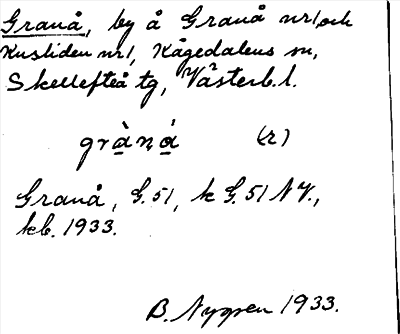 Granå, by å Granå nr 1, och
Kusliden nr 1, Kågedalens sn,
Skellefteå tg, Västerb. l.
grànȧ (r)
Granå, G. 51, k G. 51 NV.,
kb. 1933.
B. Nygren 1933.